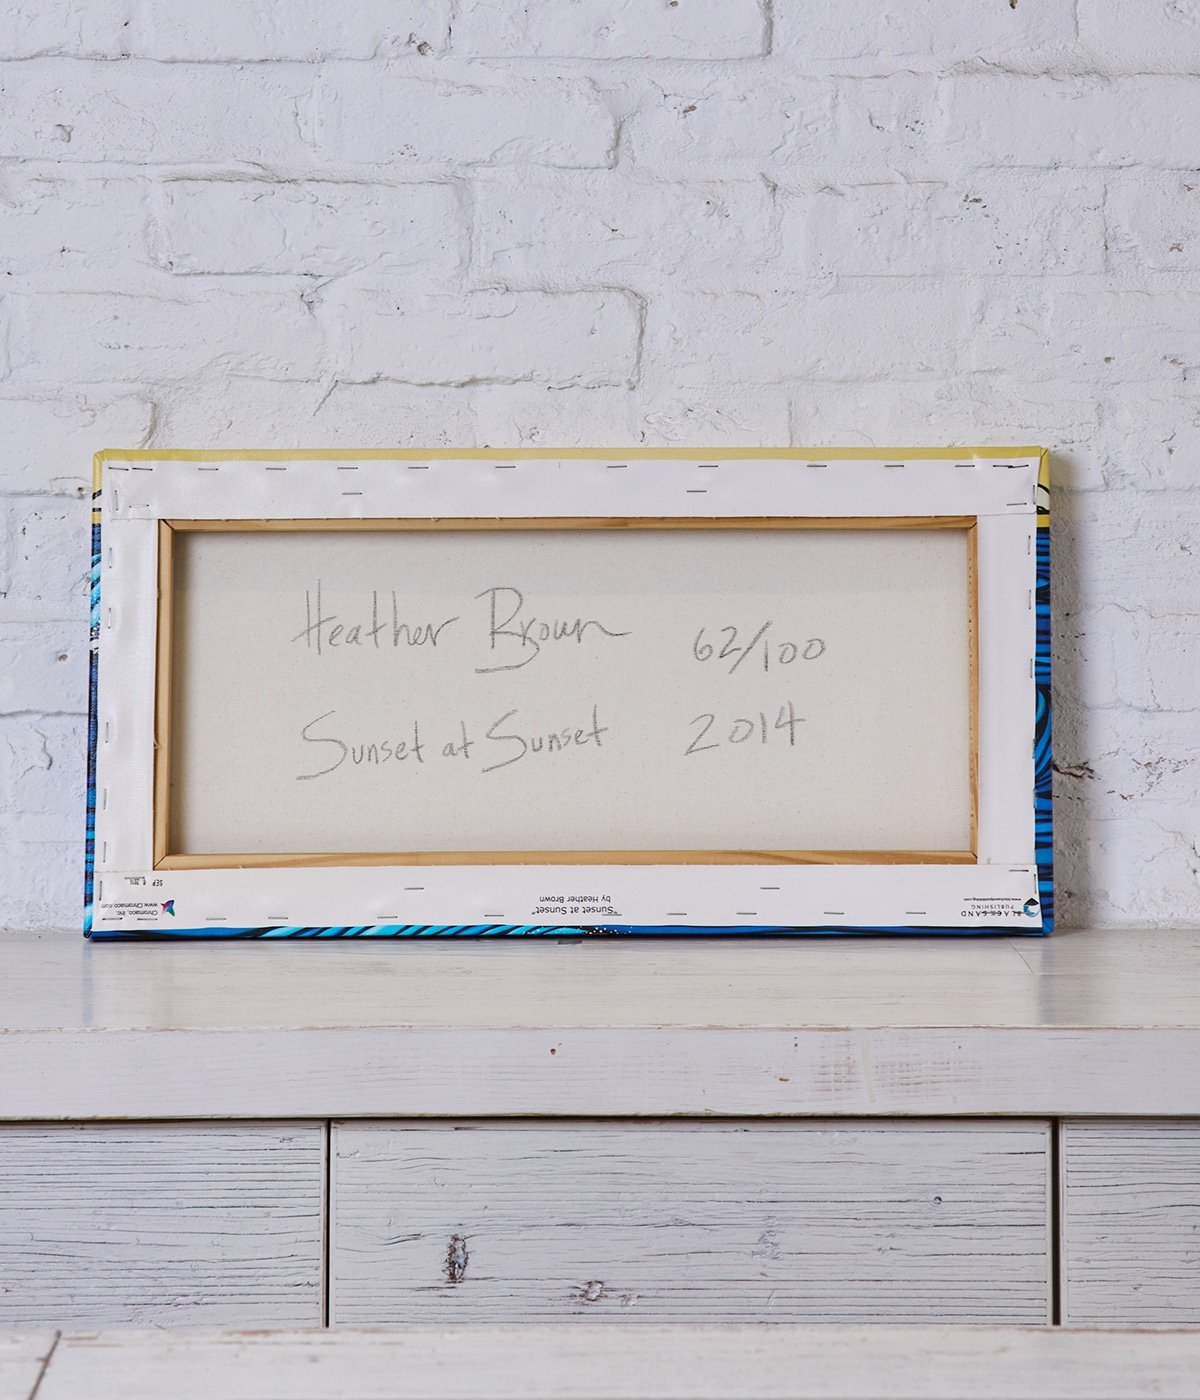 Heather Brown 62/100
Sunset at Sunset 2014
"Sunset at Sunset"
by Heather Brown
Chromaco, Inc.
www.Chromaco.com
BLACK SAND
PUBLISHING